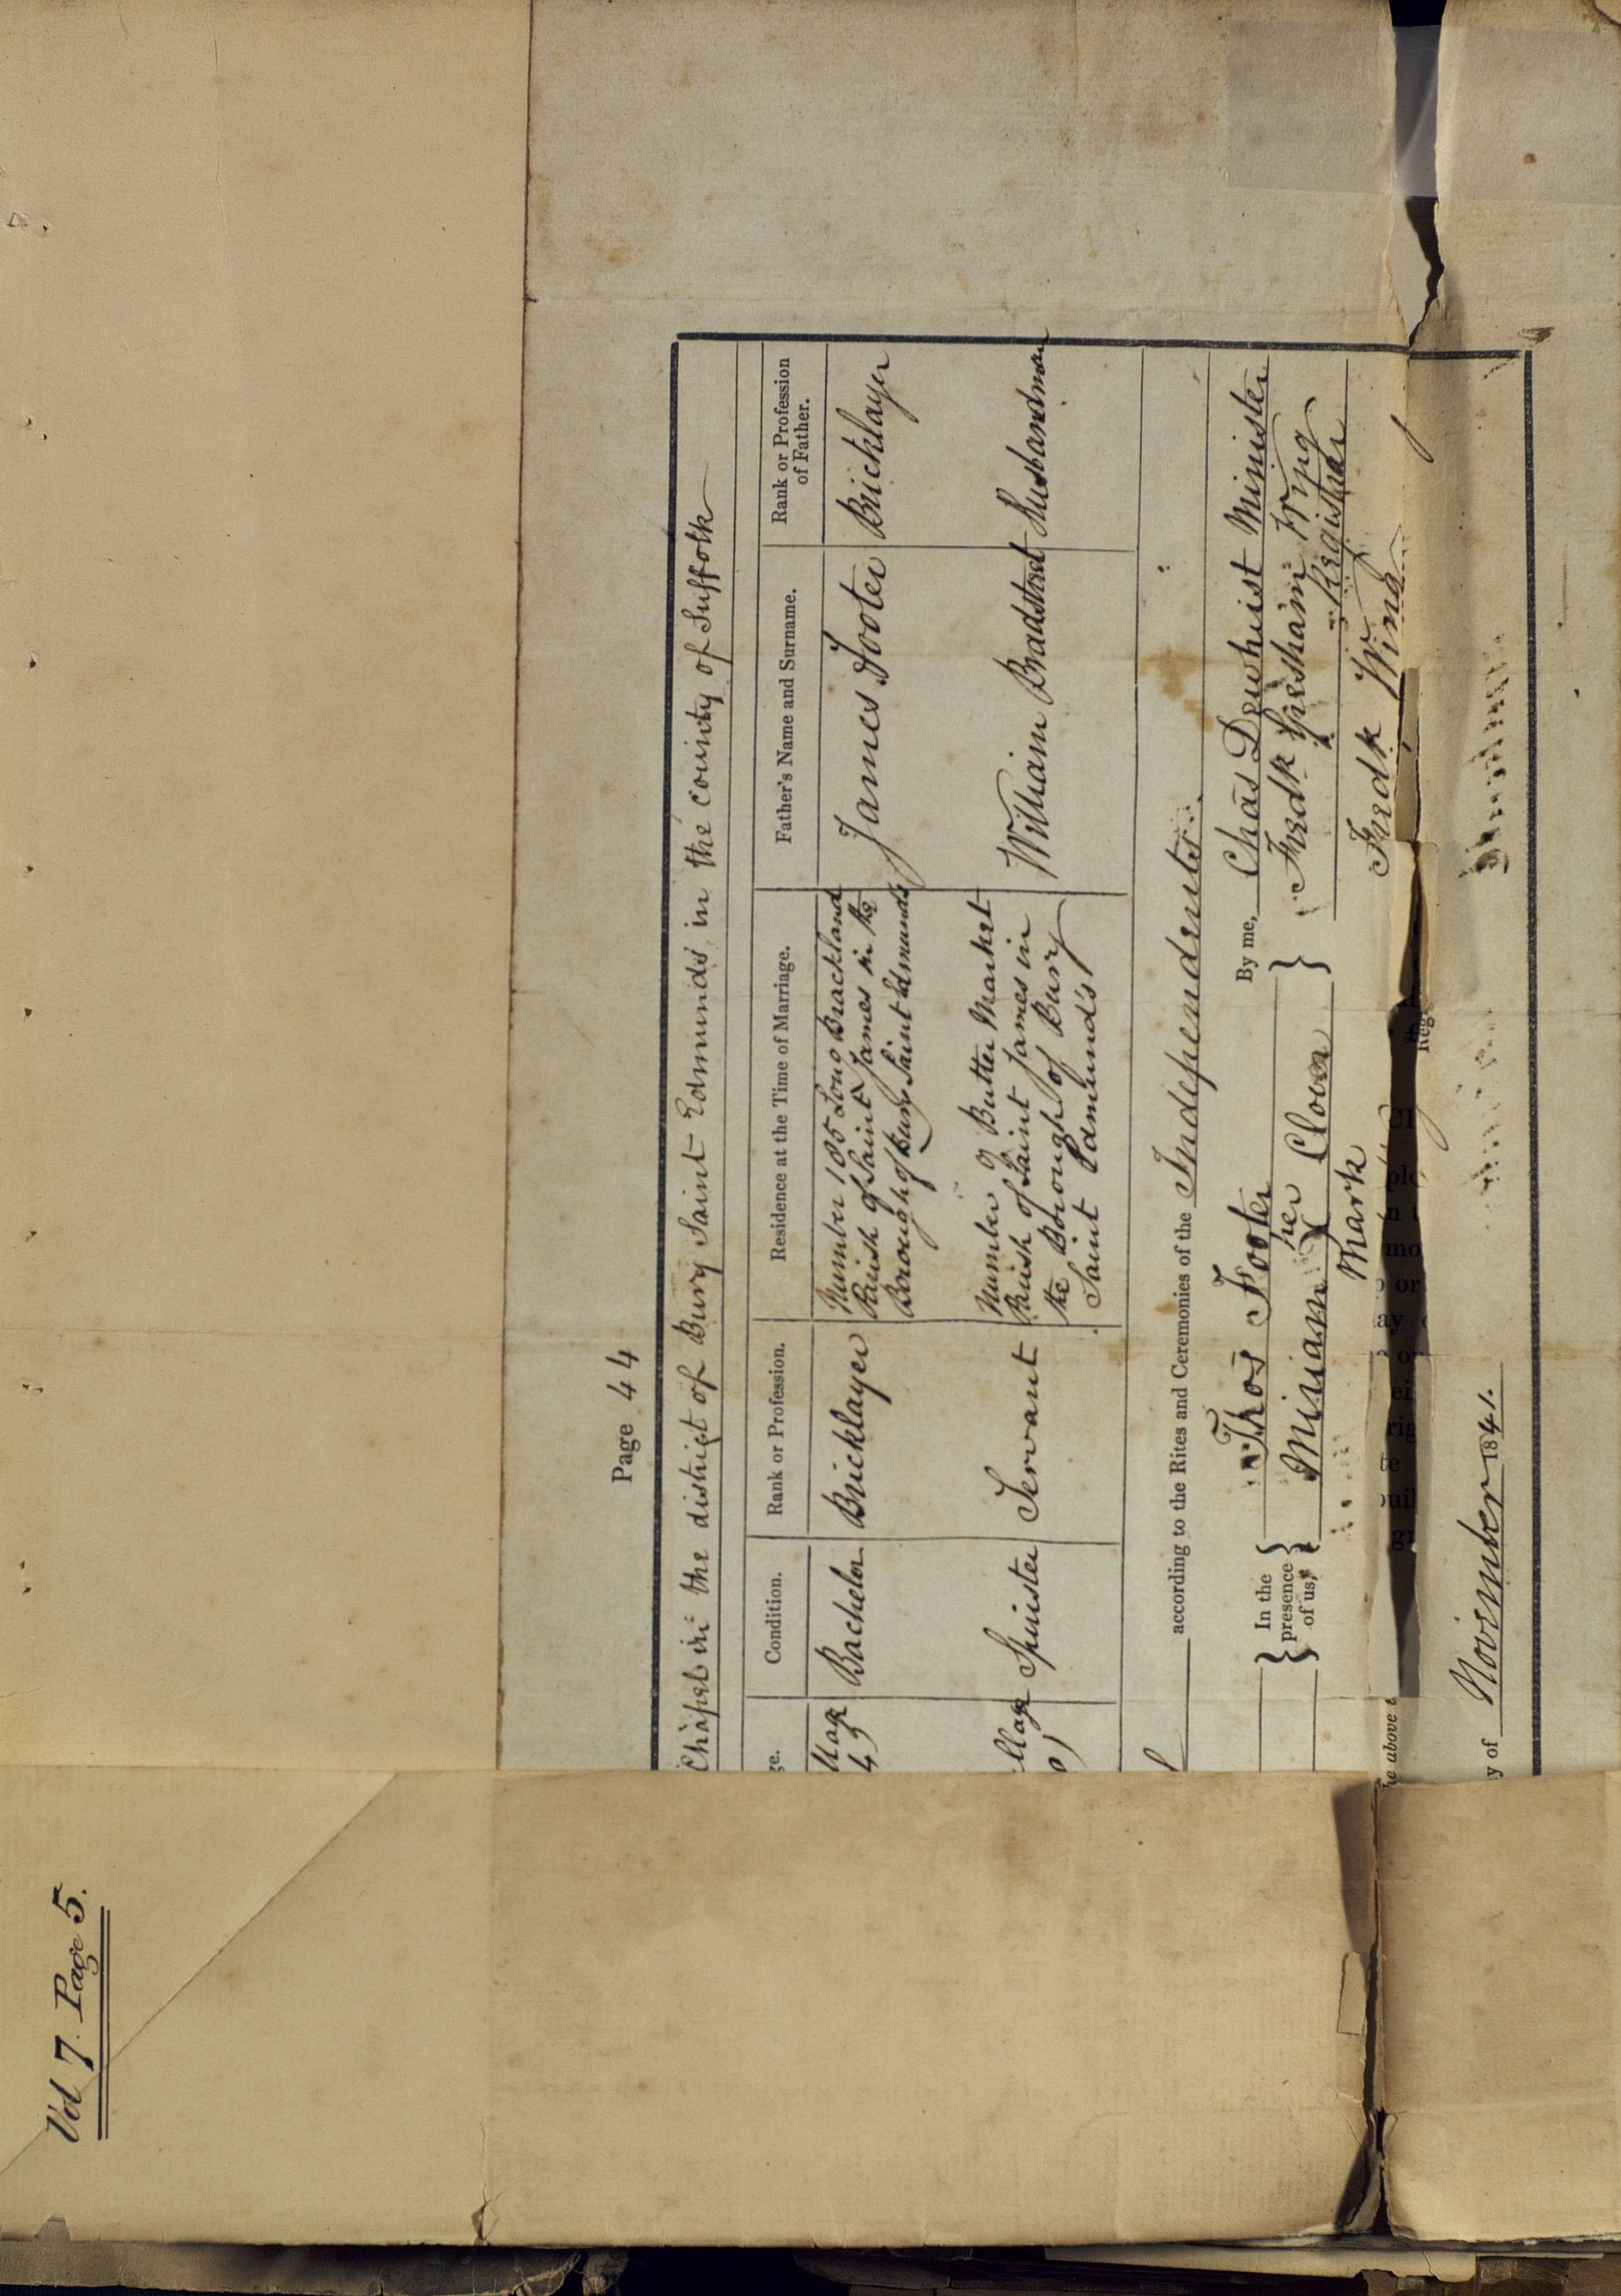 Vol 7. Page 5.
Page 44
Chapel in the district of Bury Saint Edmunds in the county of Suffolk
Condition.
Rank or Profession.
Residence at the Time of Marriage.
Father's Name and Surname.
Rank or Profession
of Father.
Bachelor
Bricklayer
Number 105 Long Brackland
Parish of Saint James in the
Borough of Bury Saint Edmunds
James Footer
Bricklayer
Spinster
Servant
Number 9 Butter Market
Parish of Saint James in
the Borough of Bury
Saint Edmund's
William Bradstreet
Husbandman
according to the Rites and Ceremonies of the Independents
By me, Chas Dewhirst Minister
In the
presence
of us,
Thos Footer
Miriam her X Clover
Mark
Fredk Gresham Wing
Registrar
Fredk Wing
he above
y of November 1841.